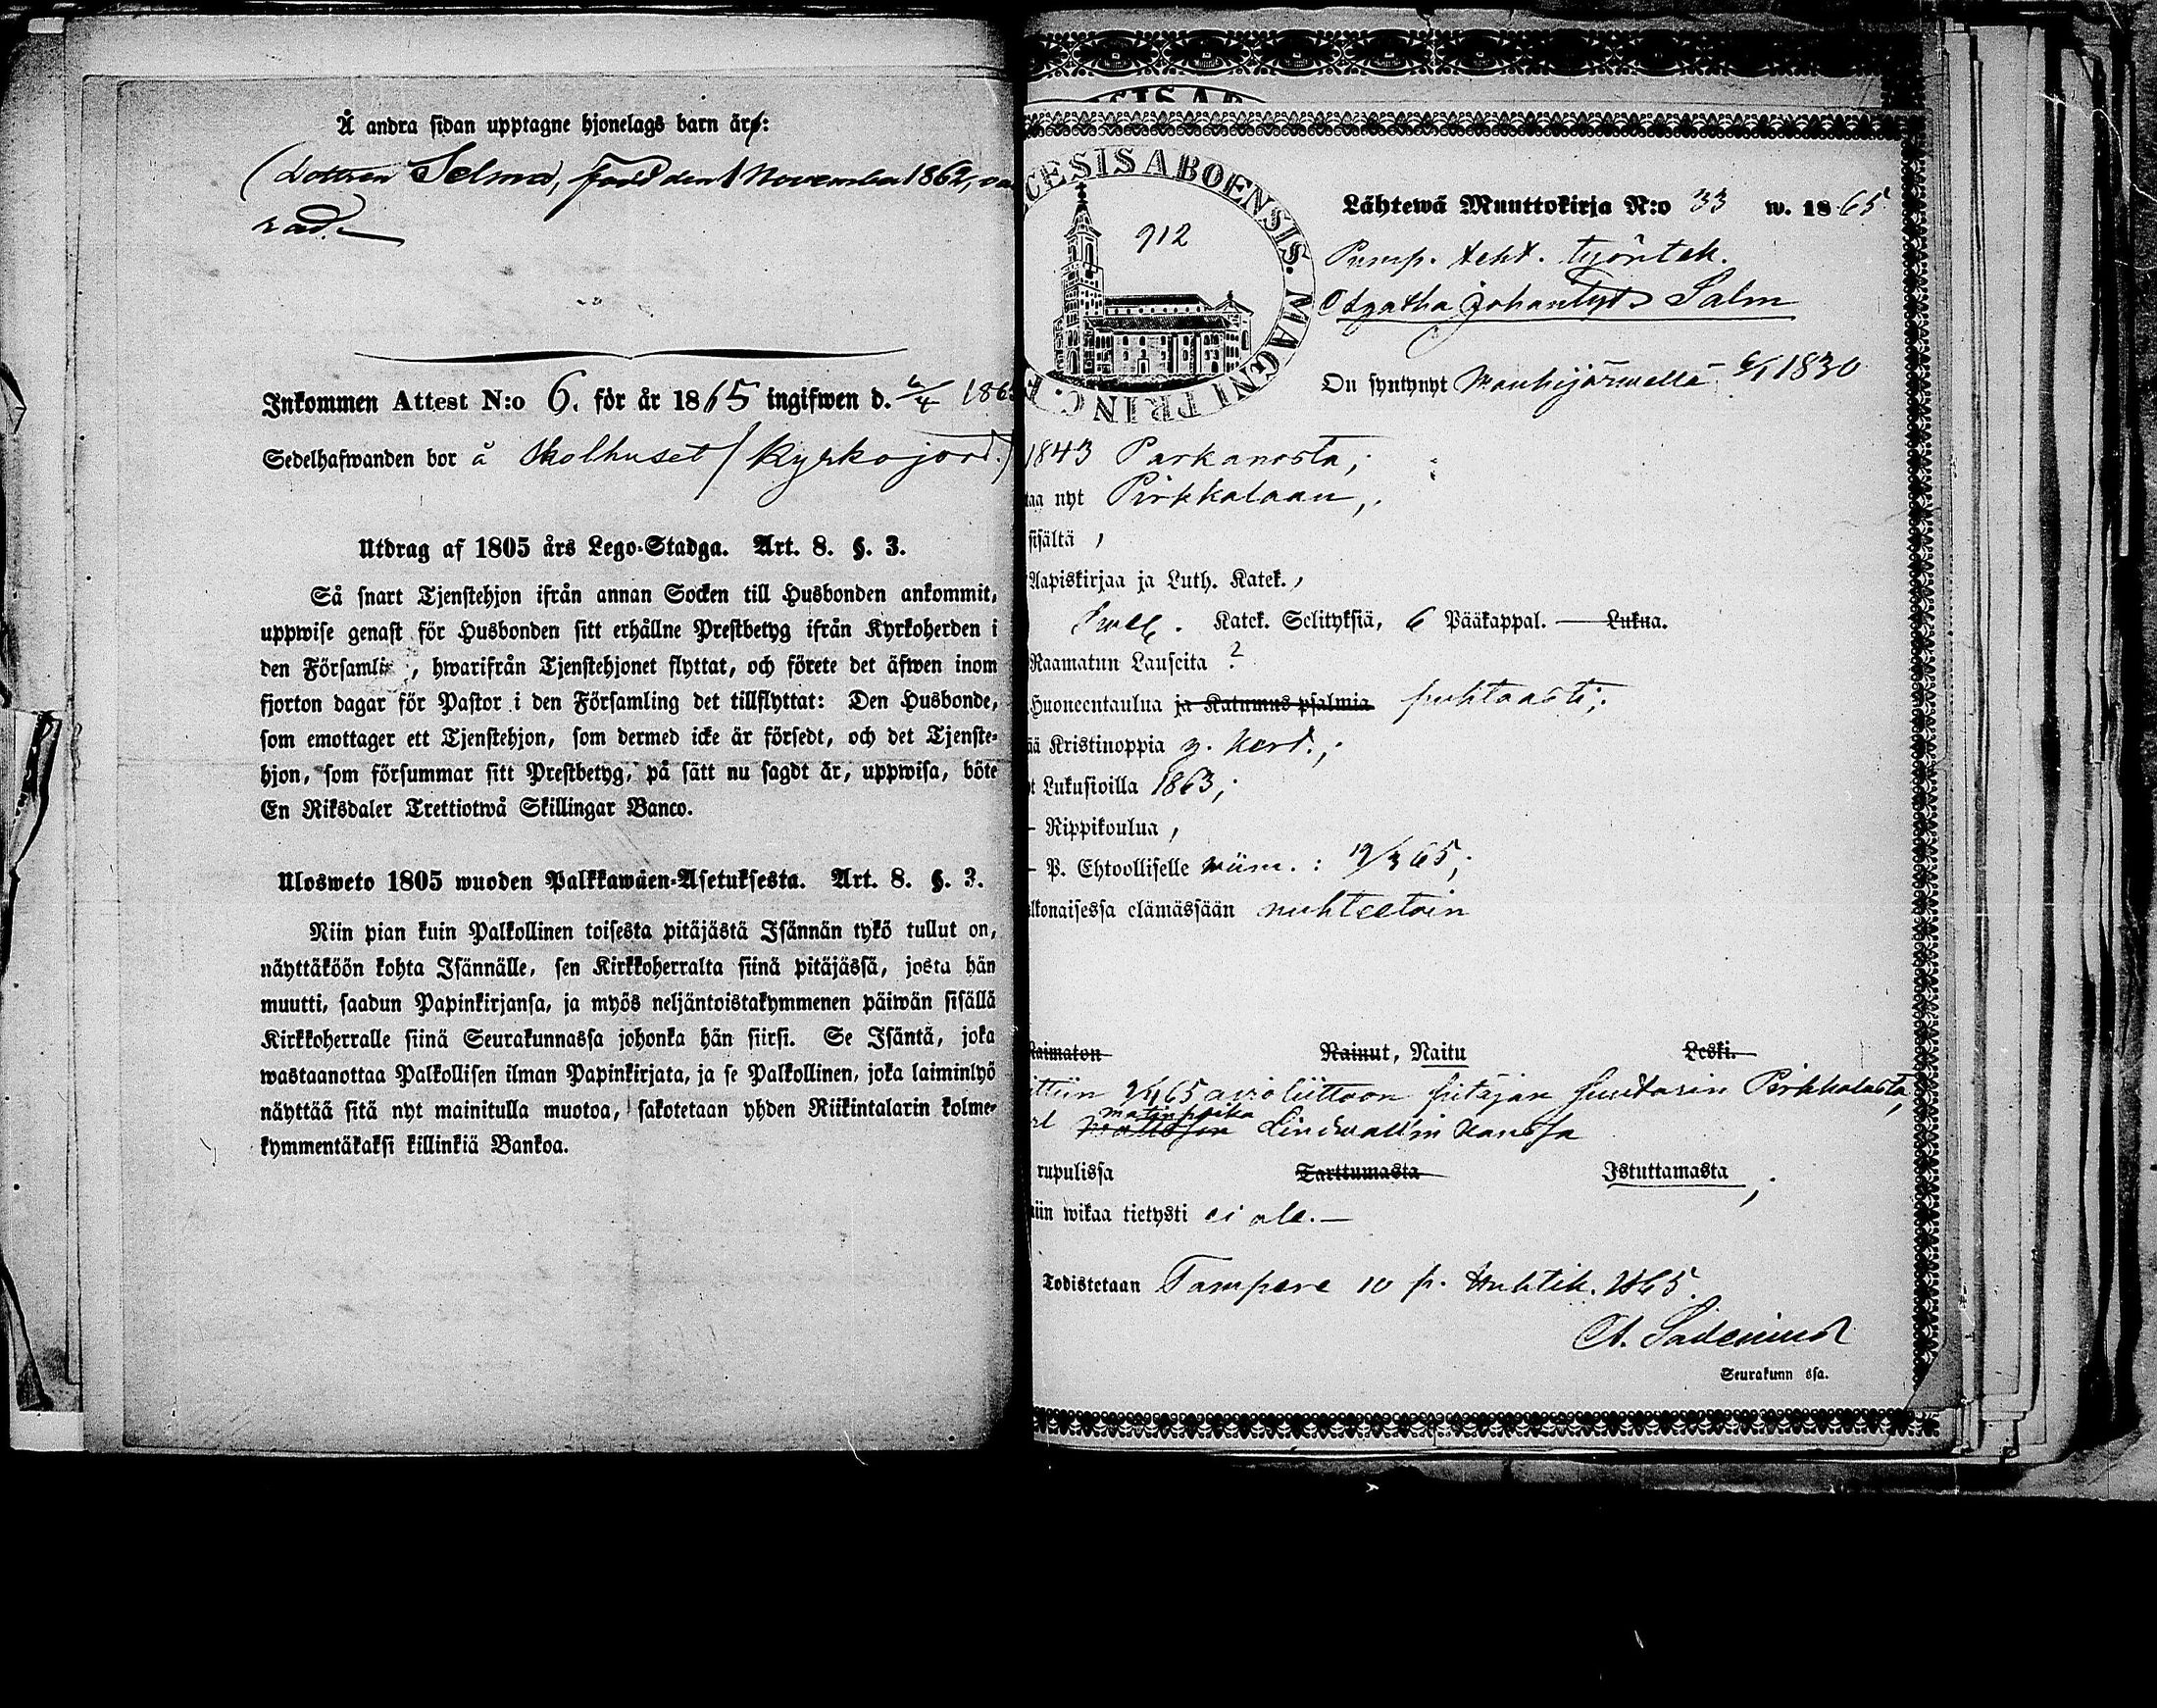 Å andra sidan upptagne hjonelags barn är:
(Dottren Selma, född den 1 November 1862,
rad.
Inkommen Attest N:o 6. för år 1865 ingifwen d. 6/4 1865
Sedelhafwanden bor å Skolhuset / Kyrkojord.)
Utdrag af 1805 års Lego-Stadga. Art. 8. §. 3.
Så snart Tjenstehjon ifrån annan Socken till Husbonden ankommit,
uppwise genast för Husbonden sitt erhållne Prestbetyg ifrån Kyrkoherden i
den Församli , hwarifrån Tjenstehjonet flyttat, och förete det äfwen inom
fjorton dagar för Pastor i den Församling det tillflyttat: Den Husbonde,
som emottager ett Tjenstehjon, som dermed icke är försedt, och det Tjenste-
hjon, som försummar sitt Prestbetyg, på sätt nu sagdt är, uppwisa, böte
En Riksdaler Trettiotwå Skillingar Banco.
Ulosweto 1805 wuoden Palkkawäen-Asetuksesta. Art. 8. §. 3.
Niin pian kuin Palkollinen toisesta pitäjästä Isännän tykö tullut on,
näyttäköön kohta Isännälle, sen Kirkkoherralta siinä pitäjässä, josta hän
muutti, saadun Papinkirjansa, ja myös neljäntoistakymmenen päiwän sisällä
Kirkkoherralle siinä Seurakunnassa johonka hän siirsi. Se Isäntä, joka
wastaanottaa Palkollisen ilman Papinkirjata, ja se Palkollinen, joka laiminlyö
näyttää sitä nyt mainitulla muotoa, sakotetaan yhden Riikintalarin kolme-
kymmentäkaksi killinkiä Bankoa.
CESIS ABOENSIS. MAGNI PRINC. F
912
Lähtewä Muuttokirja N:o 33 w. 1865
Pump. teht. työntek.
Agatha Johantyt. Salm
On syntynyt Mouhijärwellä 6/1 1830
1843 Parkanosta;
taa nyt Pirkkalaan,
sisältä,
Aapiskirjaa ja Luth. Katek.,
Katek. Selityksiä, 6 Pääkappal. — Lukua.
Raamatun Lauseita ?
Huoneentaulua ja Katumus psalmia puhtaasti;
ää Kristinoppia y. kert.;
t Lukusioilla 1863;
- Rippikoulua,
- P. Ehtoolliselle wiim. : 19/3 65;
lkonaisessa elämässään nuhteetoin
Naimaton Nainut, Naitu Leski.
ittiin 9/4 65 awioliittoon pitäjän suutarin Pirkkalasta,
matinpoika
rl Mattsson Lindwall'in kanssa
rupulissa Tarttumasta Istuttamasta,
iin wikaa tietysti ei ole. —
Todistetaan Tampere 10 p. Huhtik. 1865.
Seurakunn ssa.